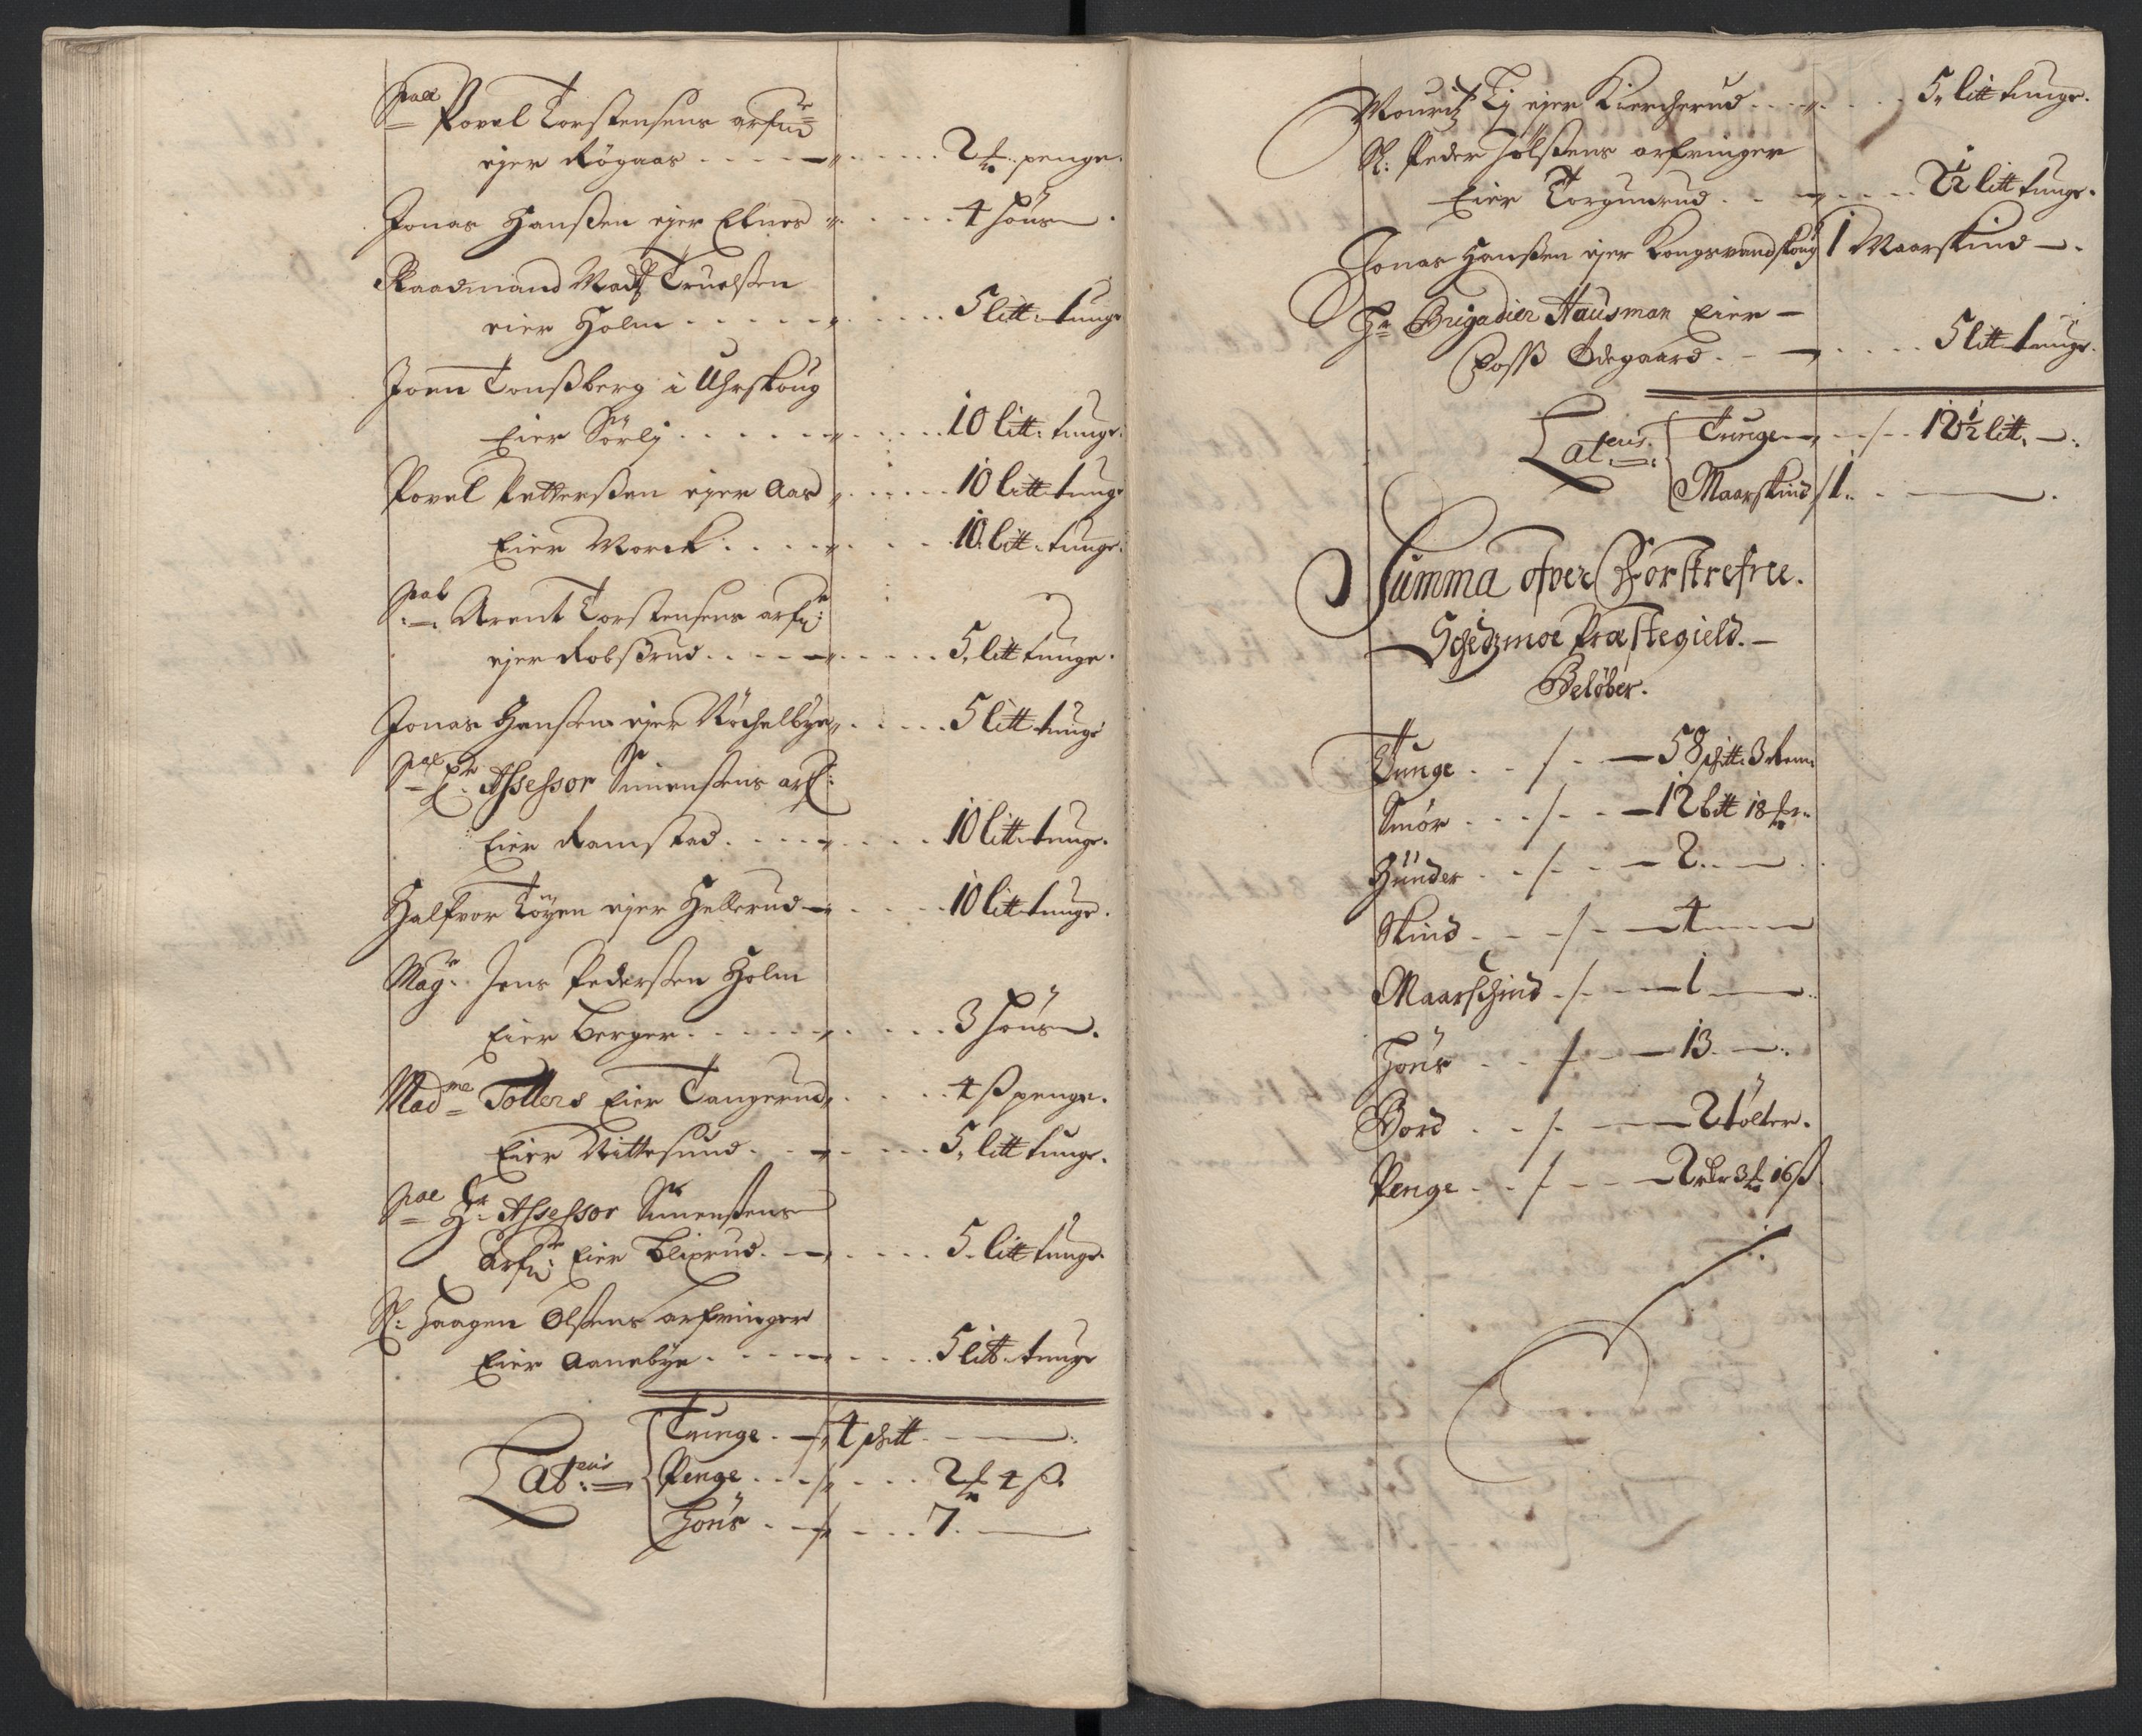 Sal
Povel Torstensens arfue
ejer Røgaas 2 penge.
Jonas Hanssen ejer Elnes 4 höns
Raadmand Mads Truelssen
eier Holm 5 litt. tunge
Joen Tonssberg i Uhrskoug
Eier Sörlj 10 litt. tunge.
Povel Petterssen ejer Aas 10 litt tunge
Eier Morck 10 litt. tunge.
Sal Arent Torstensens arf:
ejer Robssrud 5. litt tunge.
Jonas Hanssen ejer 5 litt tunge
Sal Hr. Assessor Simenssens arf:
Eier Ramstad 10 litt. tunge.
Halfvor Töyen ejer Hellerud 10 litt. tunge.
Magr. Jens Pederssen Holm
Eier Berger 3 höns.
Madme Tollers Eier Tangerud 4 ß penge.
Eier Nittesund 5. litt tunge.
Sal Hr. Assessor Simenssens
Arf: Eier Blixrud. 5. litt tunge.
Sl: Haagen Olssens arfvinger
Eier Aanebye 5 litt. tunge
Lateris: Tunge 4 skitt
Penge 2 4 ß.
Höns 7.
Mouritz Lj ejer Kiercherud 5. litt tunge.
Sl: Peder arfvinger
Eier Torgunrud 2 1/2 litt tunge.
Jonas Hanssen ejer Kongsvandskoug 1 Maarskind
Hr Brigadier Hausman Eier
Ødegaard 5 litt. tunge.
Lateris: Tunge 12 1/2 litt.
Maarskind 1.
Summa ofver Forskrefne.
Schedzmoe Præstegield.
Beløber.
Tunge 58 skitt. 3 Rem:
Smör 12 bitt 18 mr.
Hünder 2.
Skind 4
Maarschind 1
Höns 13.
Bord 2 tölter.
Penge 2 rdr 3 16 ß